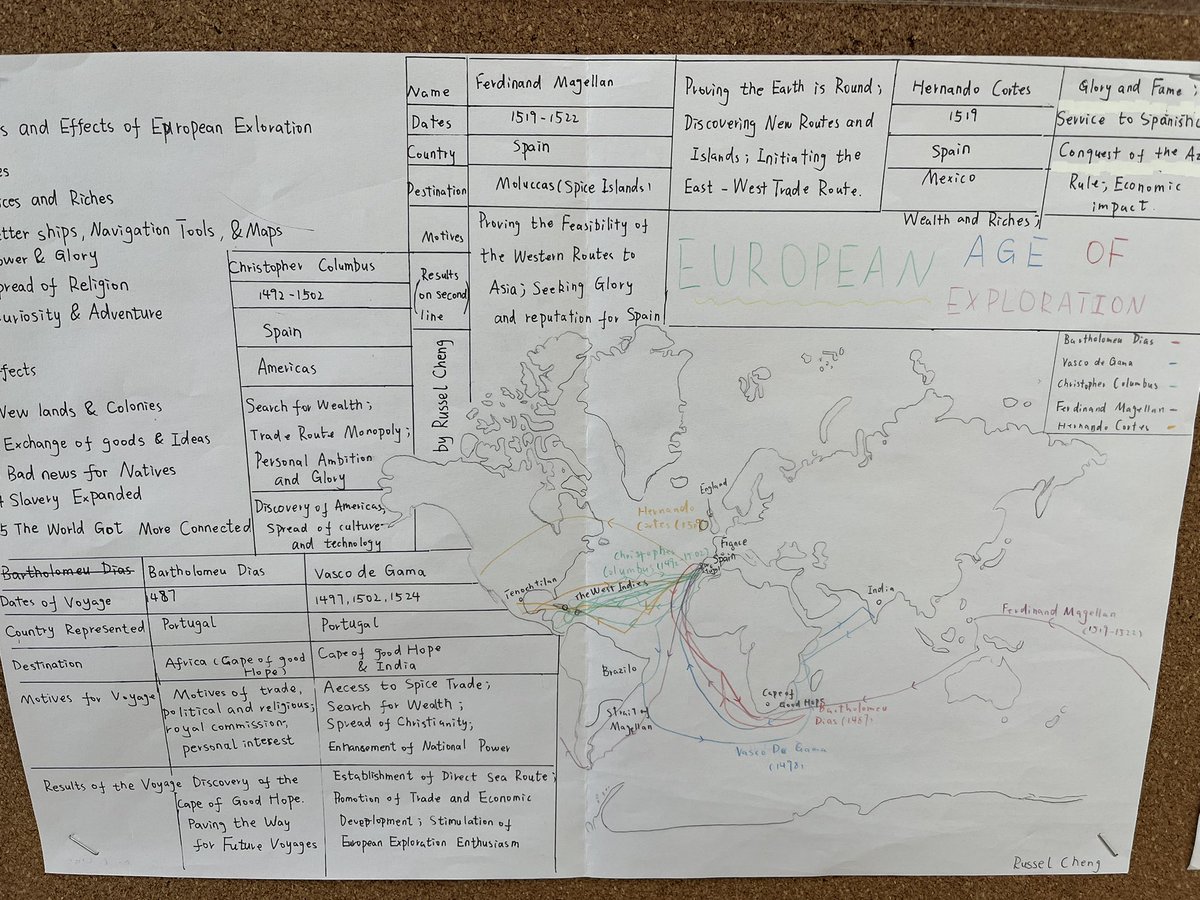 s and Effects of European Exloration
es
ices and Riches
etter ships, Navigation Tools, & Maps
ower & Glory
pread of Religion
uriosity & Adventure
fects
New lands & Colonies
Exchange of goods & Ideas
Bad news for Natives
4 Slavery Expanded
5 The World Got More Connected
Christopher Columbus
1492-1502
Spain
Americas
Search for Wealth;
Trade Route Monopoly;
Personal Ambition
and Glory
Discovery of Americas,
Spread of culture
and technology
Name
Dates
Country
Destination
Motives
Results
(on second
line
by Russel Cheng
Ferdinand Magellan
1519-1522
Spain
Moluccas (Spice Islands)
Proving the Feasibility of
the Western Routes to
Asia; Seeking Glory
and reputation for Spain
Proving the Earth is Round;
Discovering New Routes and
Islands; Initiating the
East-West Trade Route.
Hernando Cortes
1519
Spain
Mexico
Wealth and Riches;
Glory and Fame;
Service to Spanish
Conquest of the Az
Rule; Economic
impact.
EUROPEAN AGE OF
EXPLORATION
Bartholomeu Dias
Vasco de Gama
Christopher Columbus
Ferdinand Magellan
Hernando Cortes
England
France
Spain
Hernando
Cortes (1519)
Christopher
Columbus (1492 1502)
Tenochtilan
The West Indies
India
Ferdinand Magellan
(1519-1522)
Brazilo
Strait of
Magellan
Cape of
Good Hope
Bartholomeu
Dias (1487)
Vasco De Gama
Bartholomeu Dias
Bartholomeu Dias
Vasco de Gama
Dates of Voyage
1487
1497, 1502, 1524
Country Represented
Portugal
Portugal
Destination
Africa (Cape of good
Hope)
Cape of good Hope
& India
Motives for Voyage
Motives of trade,
political and religious;
royal commission;
personal interest
Access to Spice Trade;
Search for Wealth;
Spread of Christianity;
Enhancement of National Power
Results of the Voyage
Discovery of the
Cape of Good Hope.
Paving the Way
for Future Voyages
Establishment of Direct Sea Route;
Promotion of Trade and Economic
Development; Stimulation of
European Exploration Enthusiasm
Russel Cheng